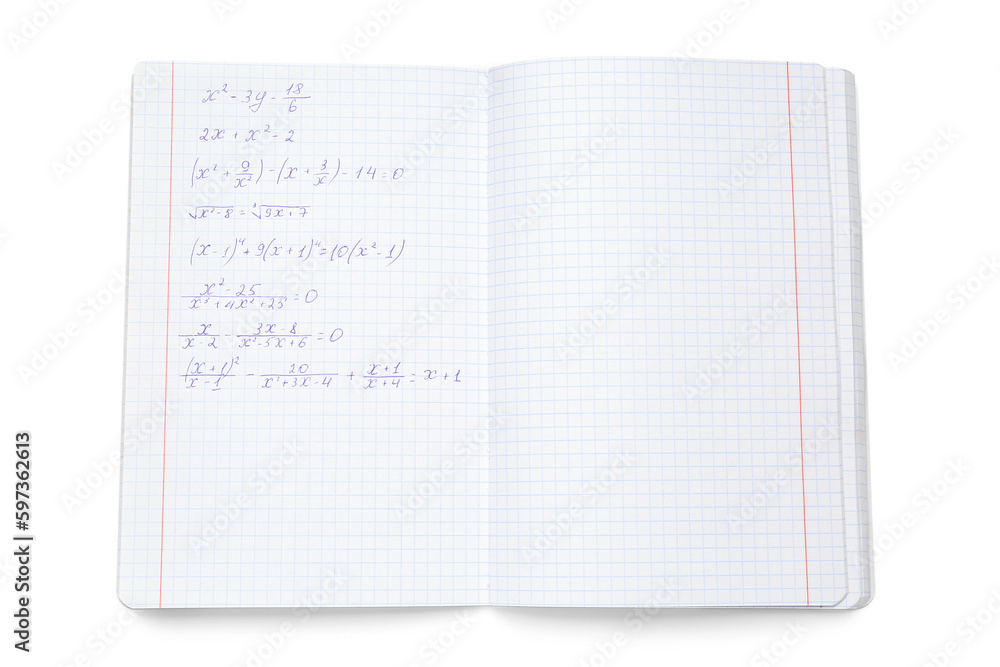 x² - 3y - 18/6
2x + x² - 2
(x² + 9/x²) - (x + 3/x) - 14 = 0
√(x² - 8) = ³√(9x + 7)
(x - 1)⁴ + 9(x + 1)⁴ = 10(x² - 1)
(x² - 25)/(x³ + 4x² + 25) = 0
x/(x - 2) - (3x - 8)/(x² - 5x + 6) = 0
(x + 1)²/(x - 1) - 20/(x² + 3x - 4) + (x + 1)/(x + 4) = x + 1
Adobe Stock | #597362613